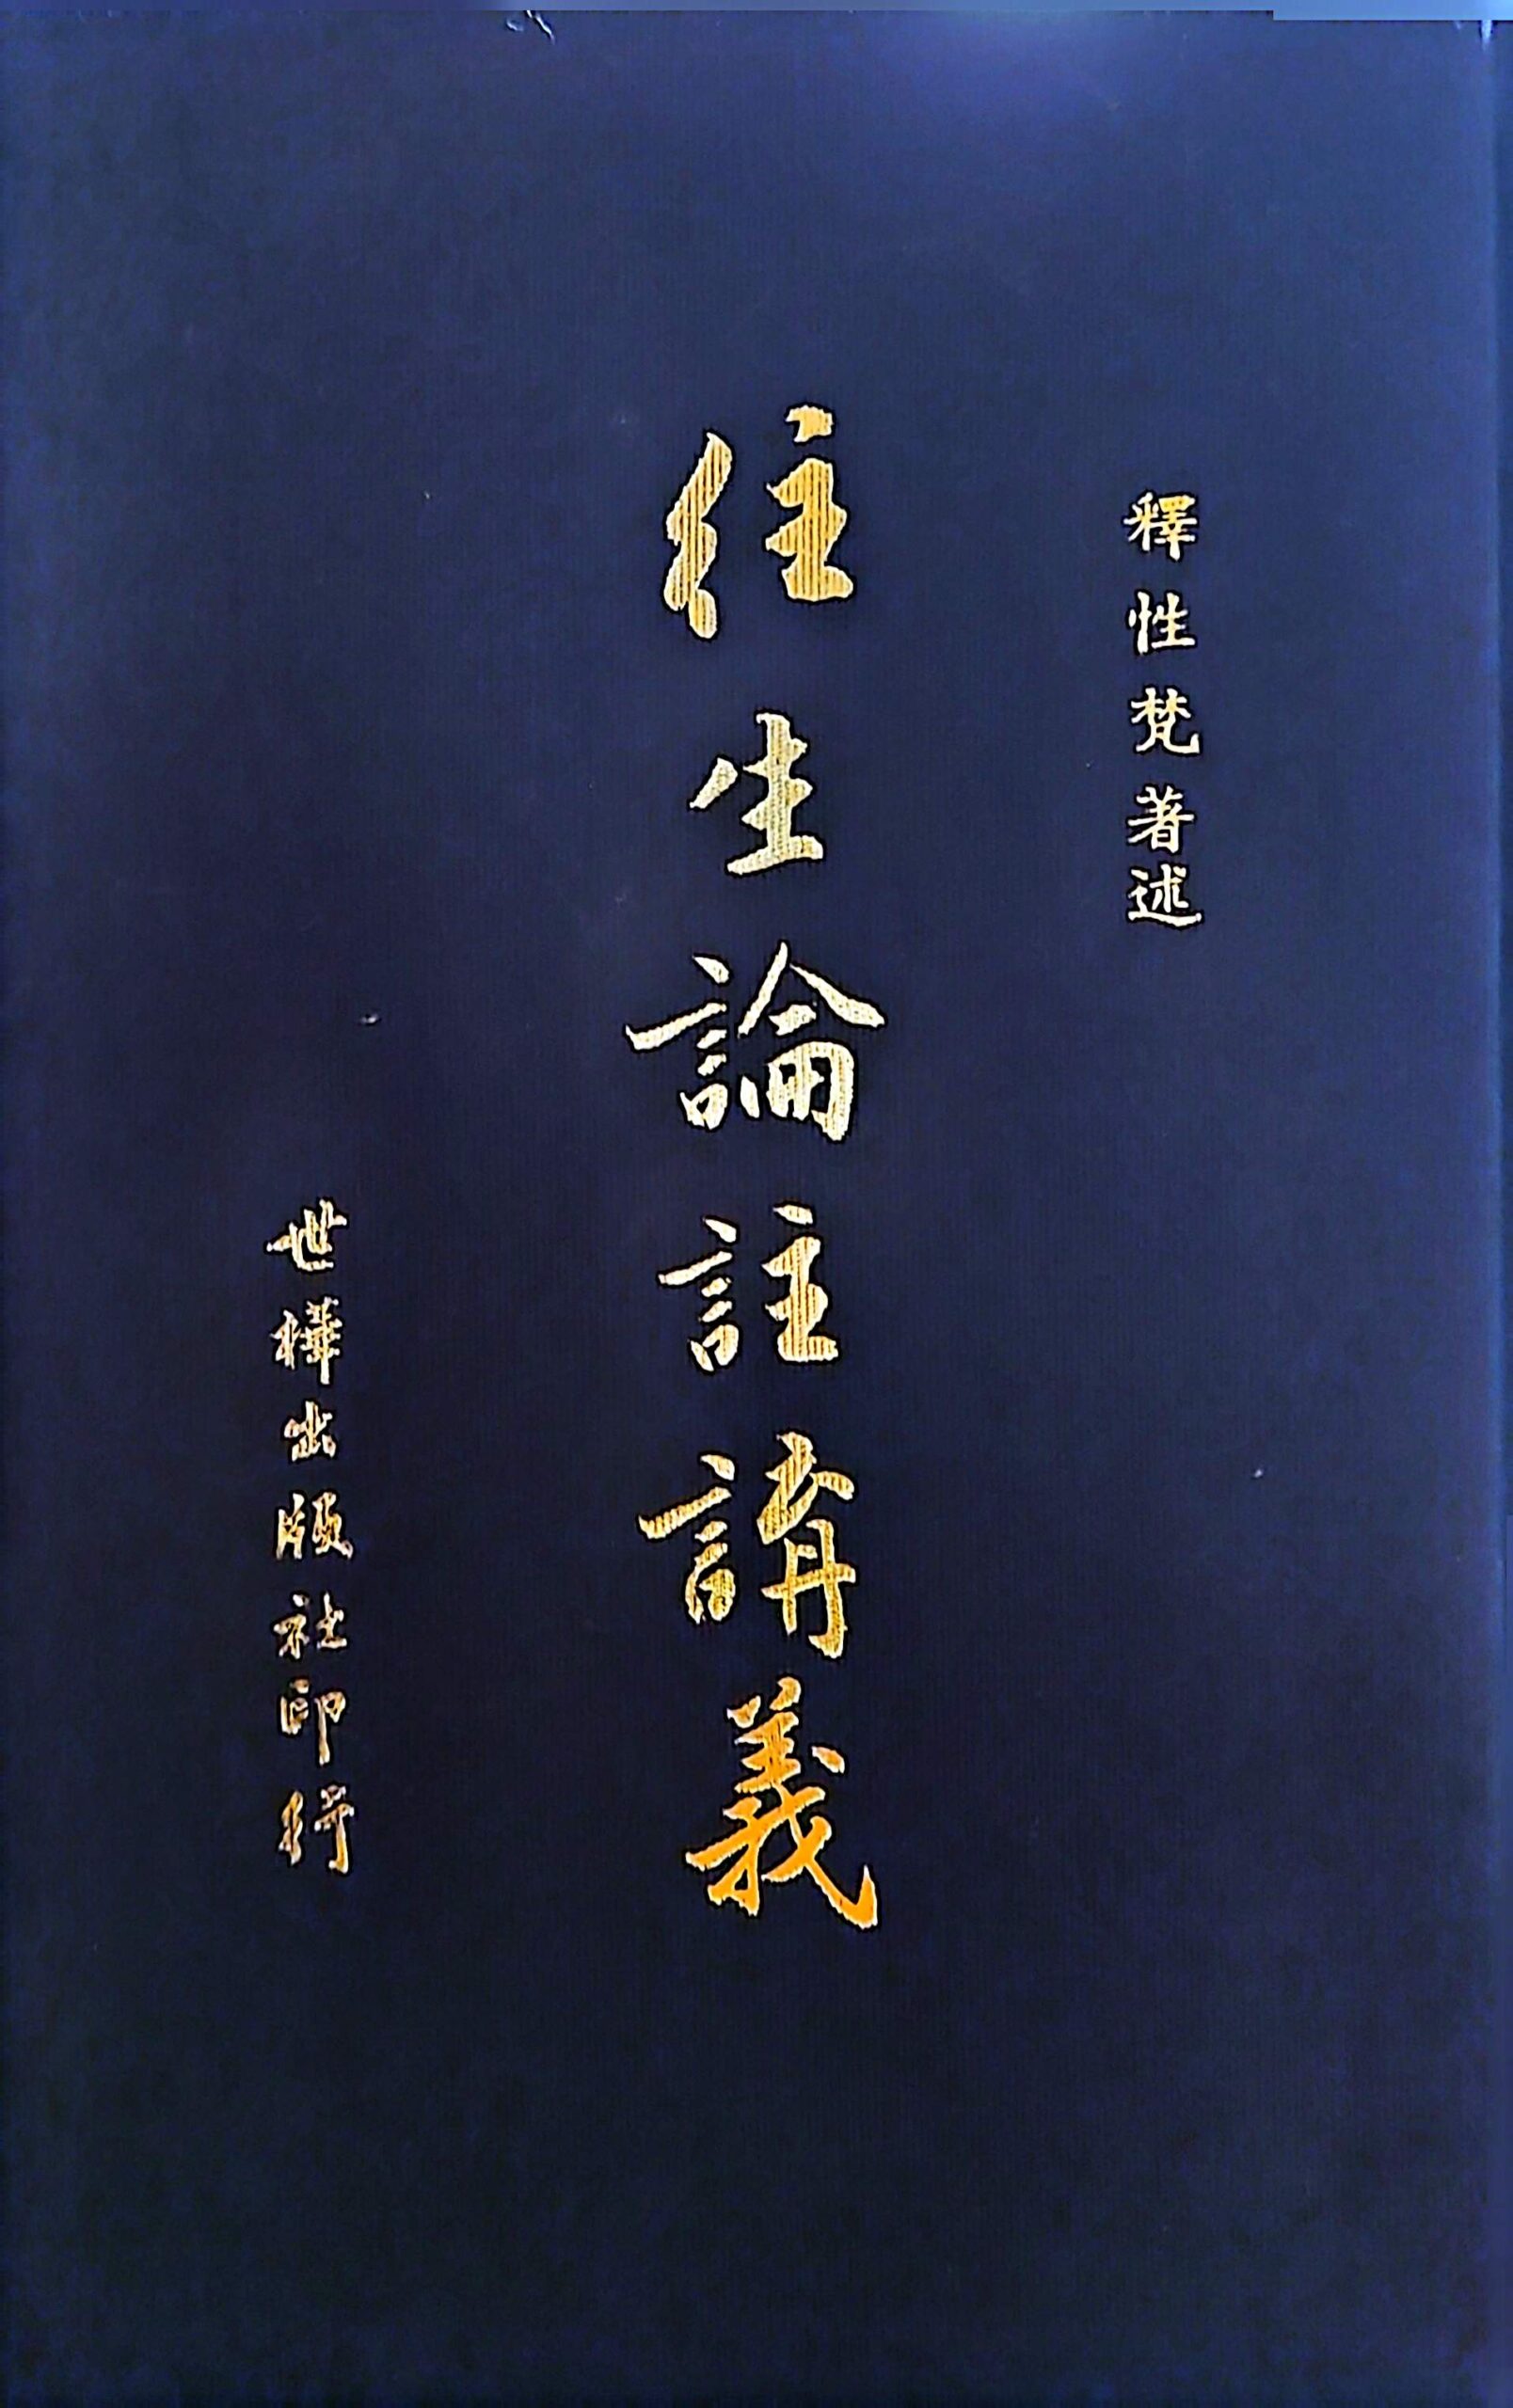 釋性梵著述
往生論註講義
世樺出版社印行